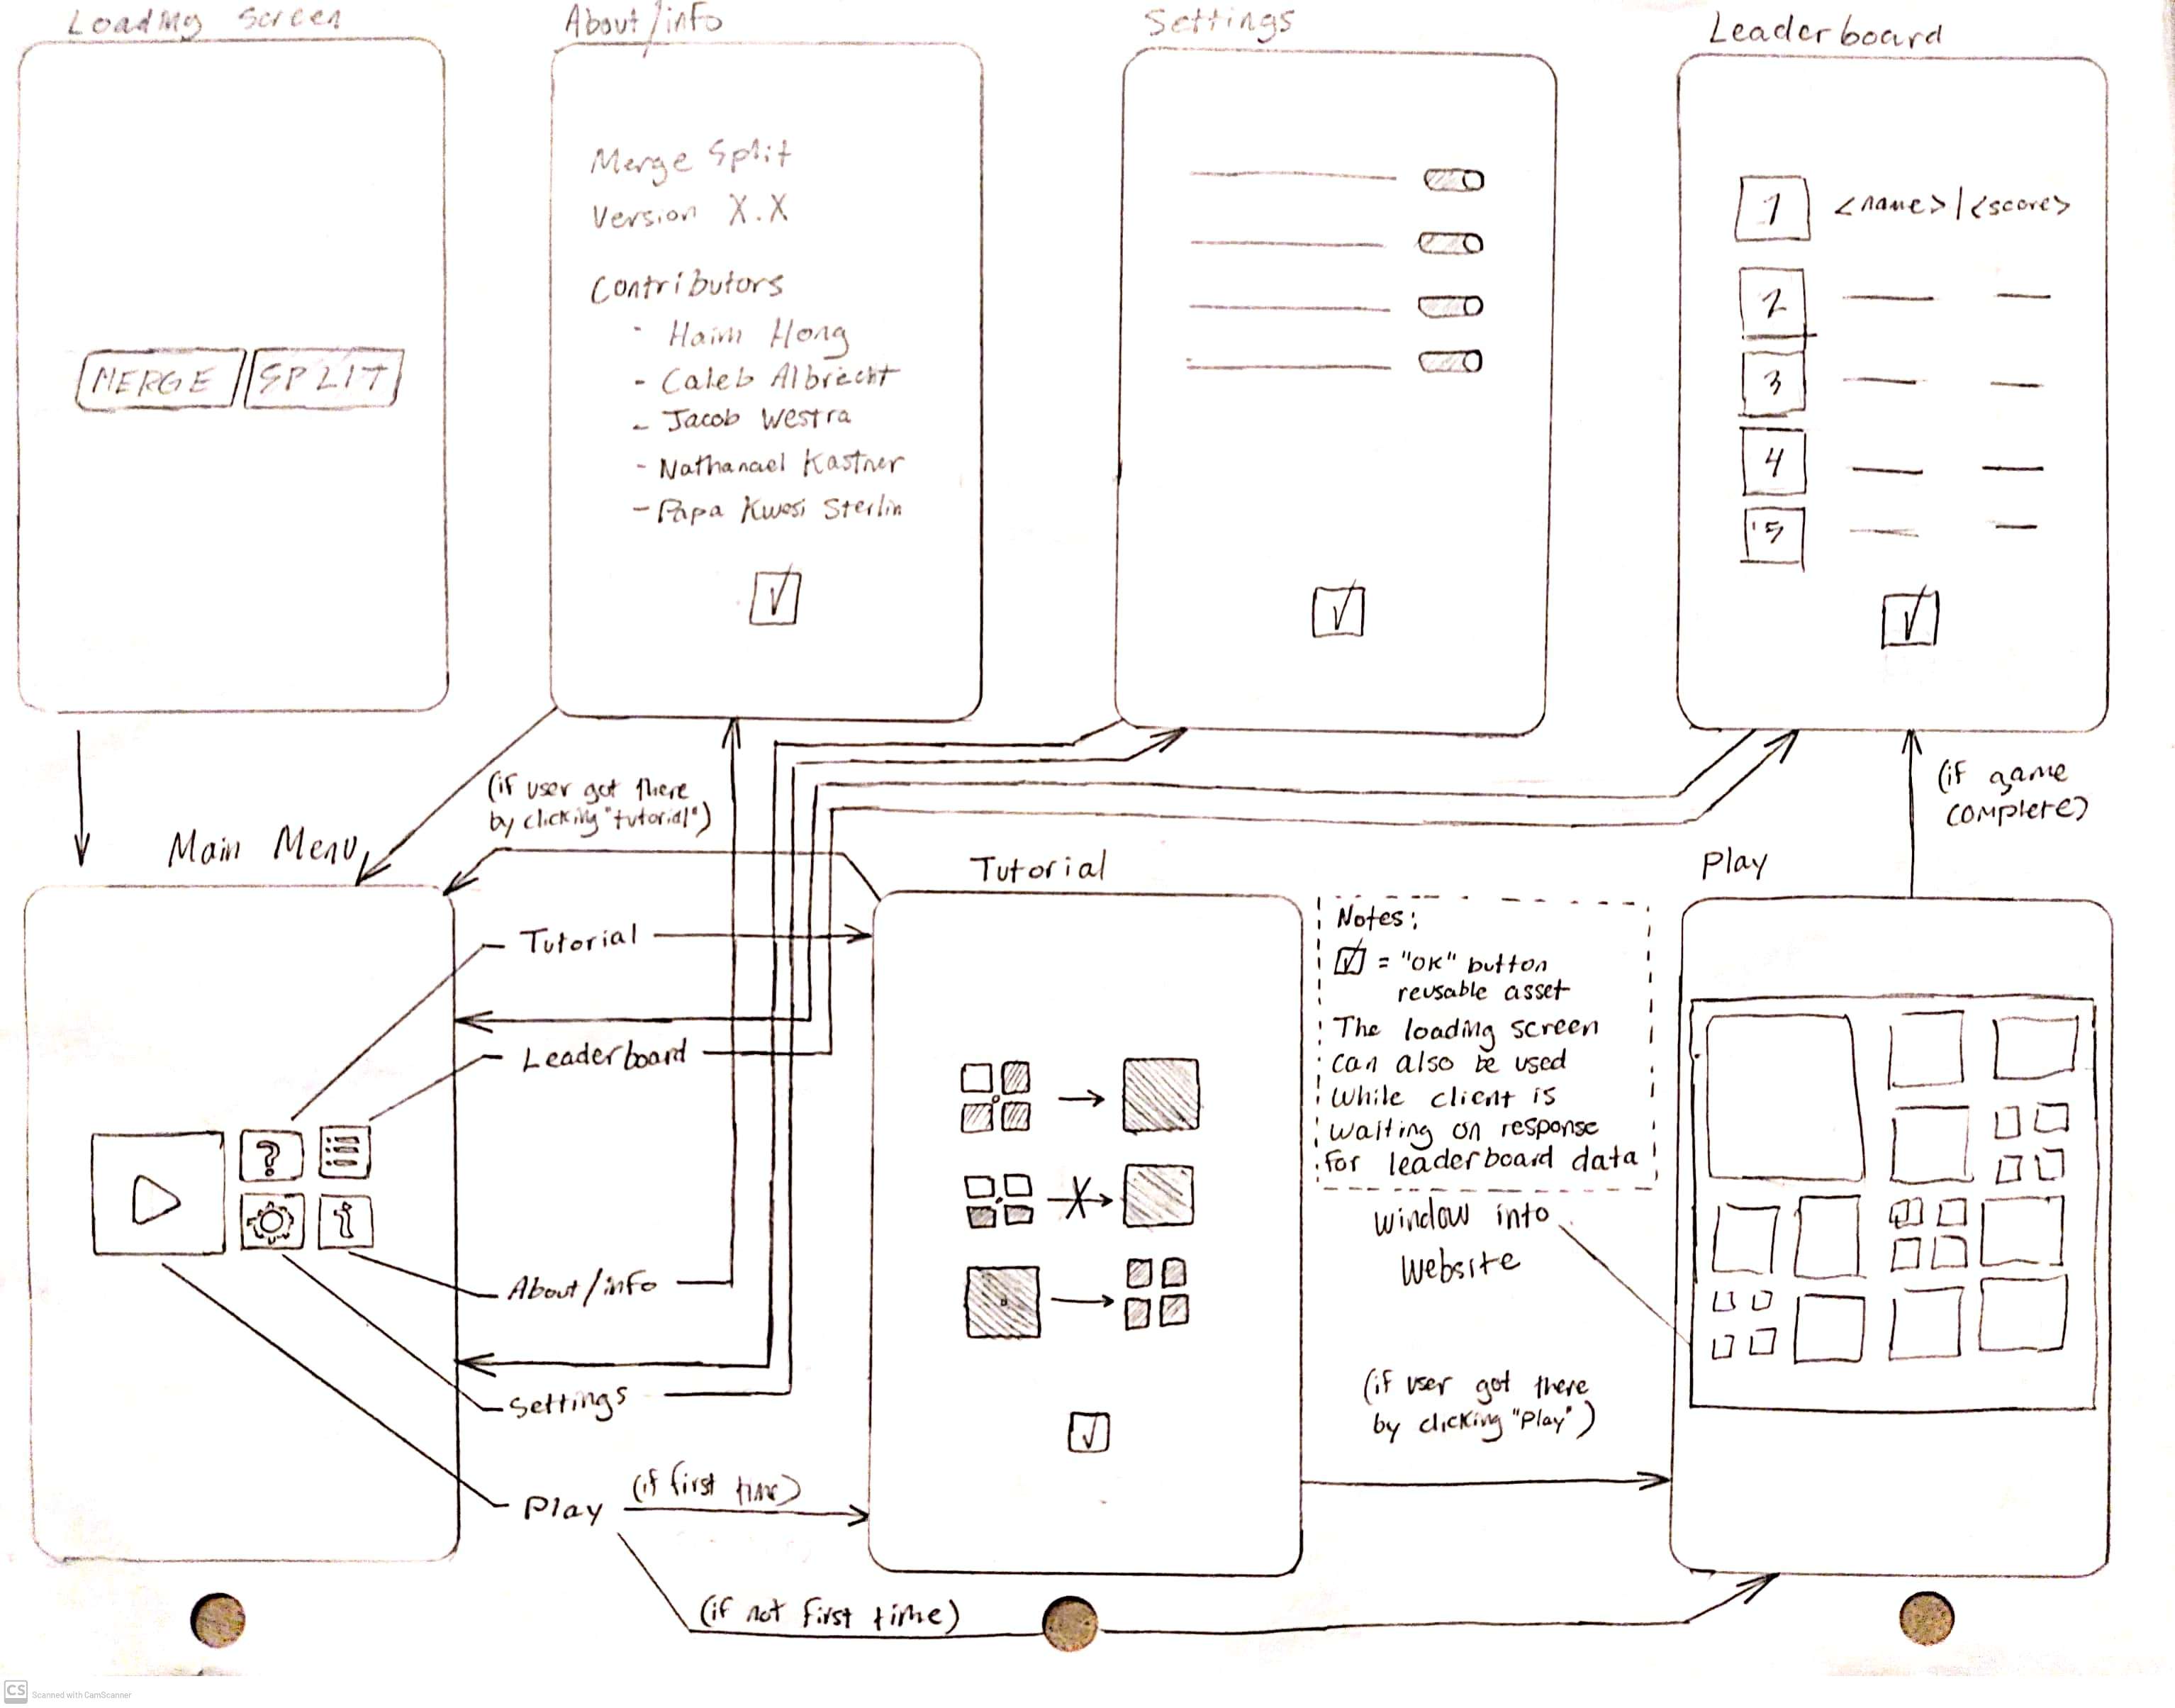 Loading screen
MERGE SPLIT
About/info
Merge Split
Version X.X
Contributors
- Haim Hong
- Caleb Albrecht
- Jacob Westra
- Nathanael Kastner
- Papa Kwesi Sterlin
Settings
Leaderboard
1 <name> | <score>
2
3
4
5
(if user got there
by clicking "tutorial")
(if game
complete)
Main Menu
Tutorial
Leaderboard
?
i
About/info
Settings
Play
(if first time)
(if not first time)
Tutorial
Notes:
= "OK" button
reusable asset
The loading screen
can also be used
while client is
waiting on response
for leaderboard data
window into
website
(if user got there
by clicking "Play")
Play
CS Scanned with CamScanner